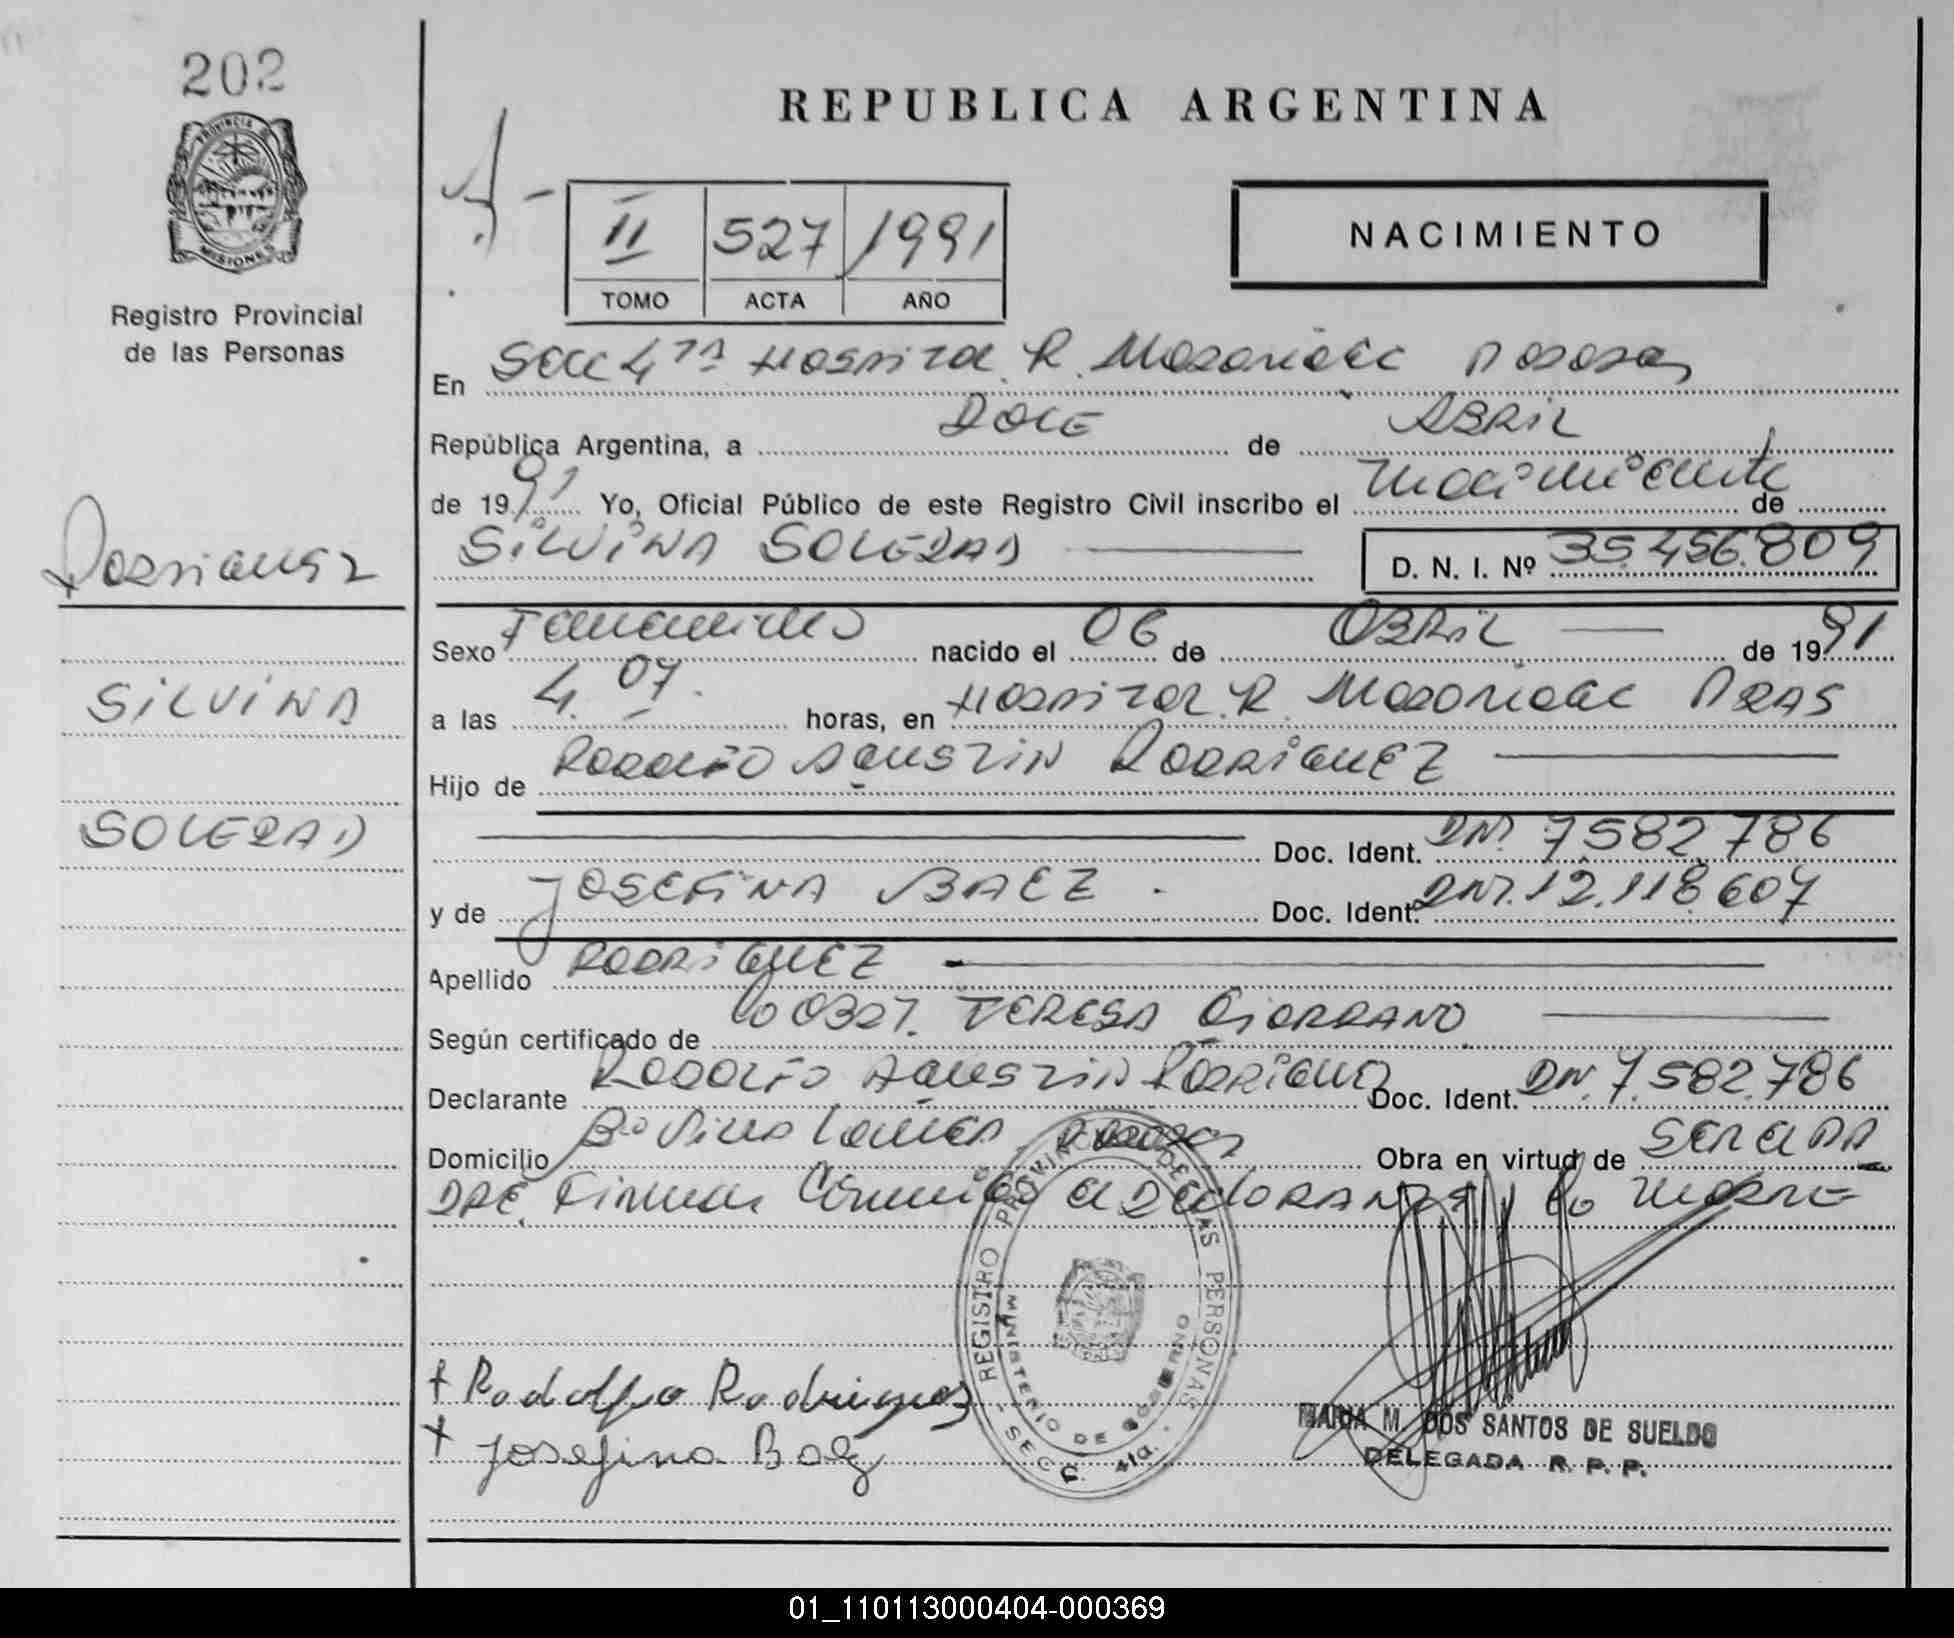 202
PROVINCIA DE
MISIONES
Registro Provincial
de las Personas
REPUBLICA ARGENTINA
II 527 1991
TOMO ACTA AÑO
NACIMIENTO
En Secc 4ta Hospital R. Madariaga Posadas
República Argentina, a DOCE de ABRIL
de 1991 Yo, Oficial Público de este Registro Civil inscribo el nacimiento de
SILVINA SOLEDAD
D. N. I. Nº 35.456.809
Rodriguez
SILVINA
SOLEDAD
Sexo Femenino nacido el 06 de ABRIL de 1991
a las 4.07. horas, en Hospital R. Madariaga PDAS
Hijo de RODOLFO AGUSTIN RODRIGUEZ
Doc. Ident. DNI. 7.582.786
y de JOSEFINA BAEZ. Doc. Ident. DNI. 12.118.607
Apellido RODRIGUEZ
Según certificado de OBST. TERESA GIORDANO
Declarante RODOLFO AGUSTIN Doc. Ident. DNI. 7.582.786
Domicilio Bo Obra en virtud de SER EL PA
DRE. Firman el DECLARANTE y la MADRE
+ Rodolfo Rodriguez
+ Josefina Baez
REGISTRO PROVINCIAL DE LAS PERSONAS
MINISTERIO DE GOBIERNO
- SECC. 4ta. -
MARIA M. DOS SANTOS DE SUELDO
DELEGADA R. P. P.
01_110113000404-000369